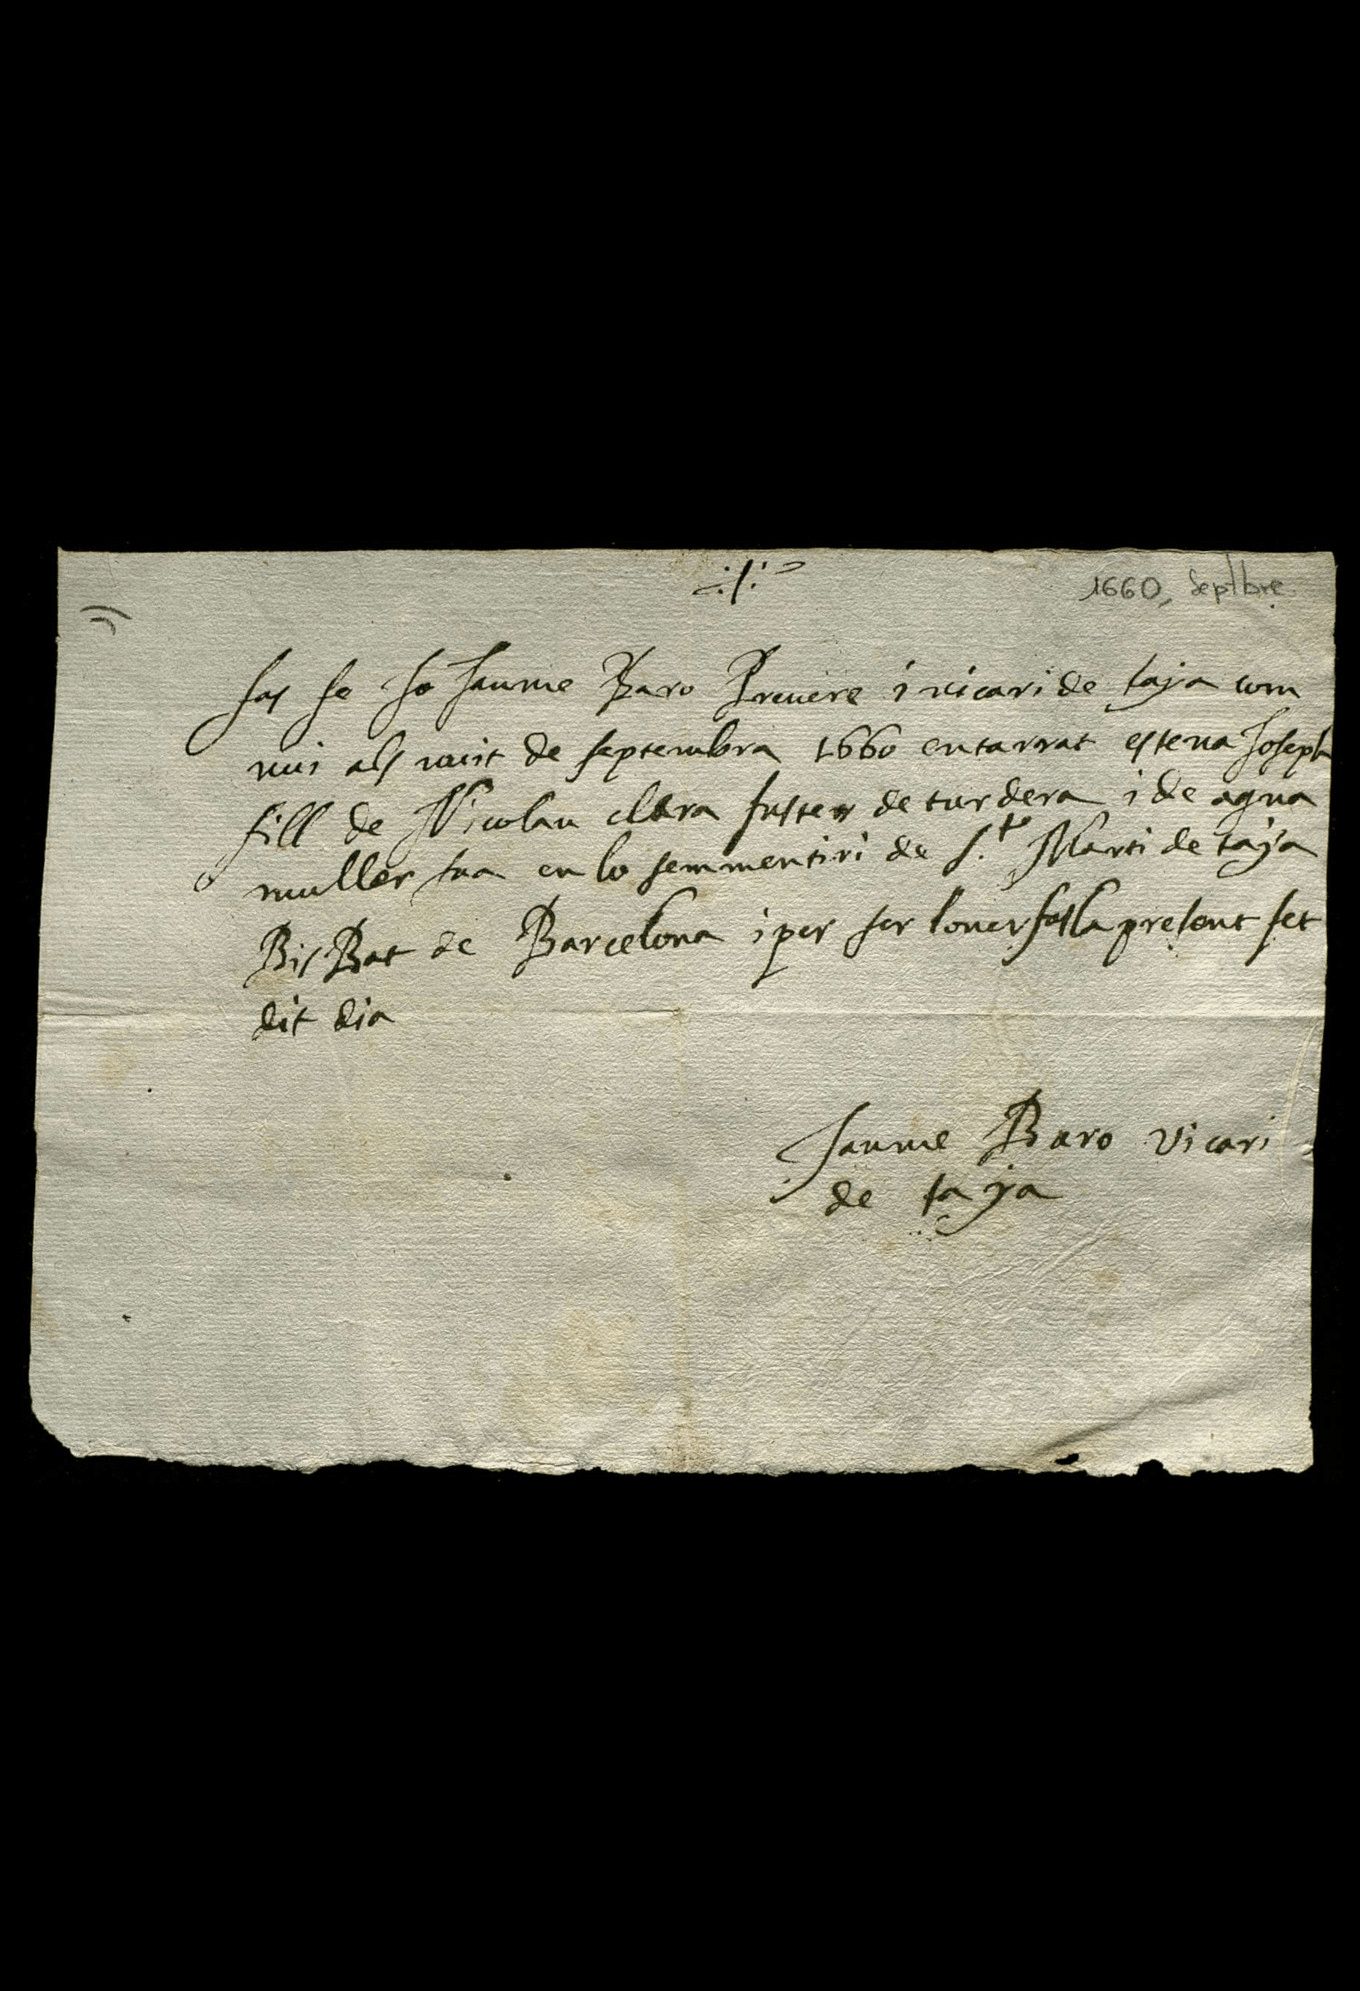 1660, Septbre
fas fe Jo Jaume Baro Prevere i vicari de taya com
vui als vuit de septembra 1660 entarrat esteva Joseph
fill de Nicolau clara fuster de turdera i de agna
muller sua en lo sementiri de s.t Marti de taya
BisBat de Barcelona i per ser lo ver fas la present fet
dit dia
Jaume Baro vicari
de taya